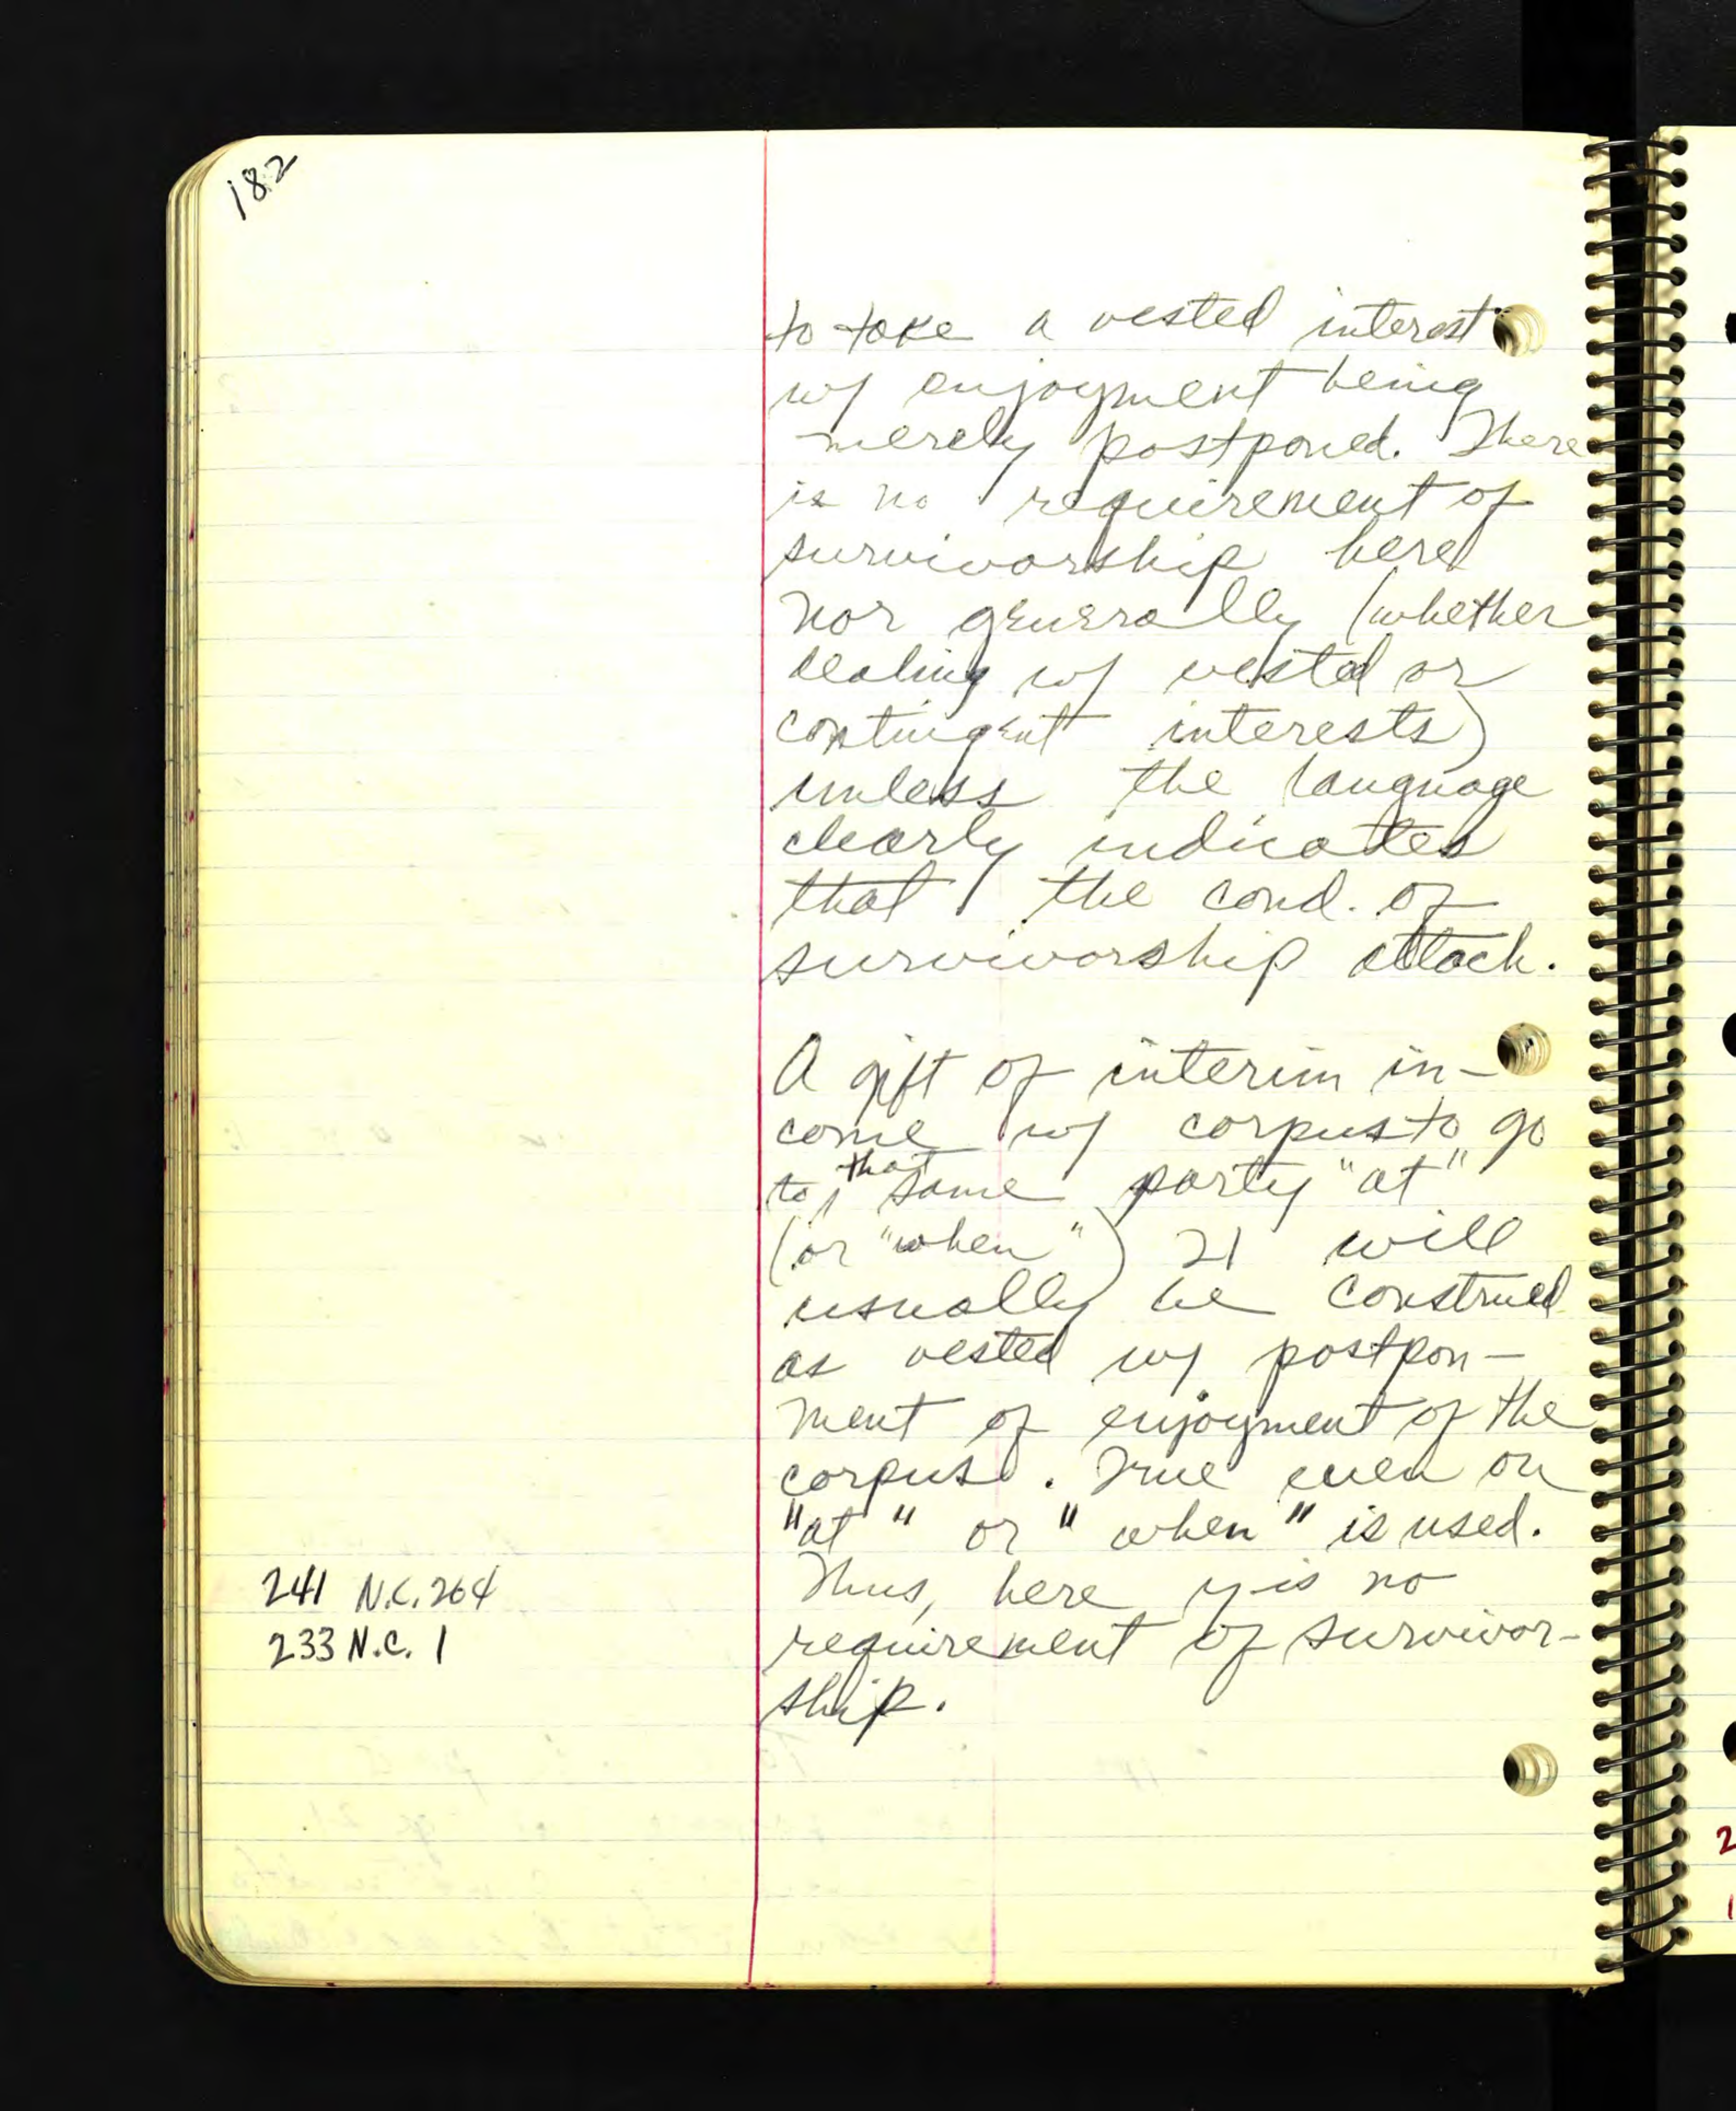 182
to take a vested interest
w/ enjoyment being
merely postponed. There
is no requirement of
survivorship here
nor generally (whether
dealing w/ vested or
contingent interests)
unless the language
clearly indicates
that the cond. of
survivorship attach.
A gift of interim in-
come w/ corpus to go
to that same party "at"
(or "when") 21 will
usually be construed
as vested w/ postpon-
ment of enjoyment of the
corpus. True even on
"at" or "when" is used.
241 N.C. 264
233 N.C. 1
Thus, here y is no
requirement of survivor-
ship.
2
1